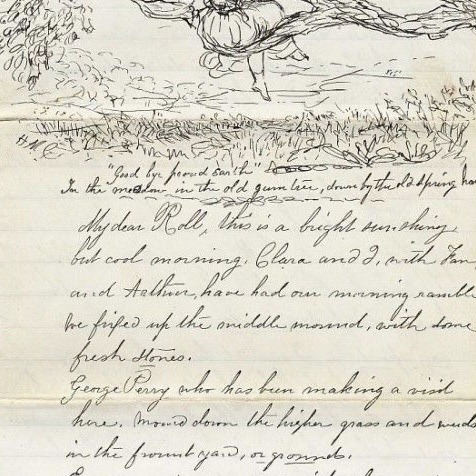 "Good bye proud Earth"
In the meadow in the old gum tree, down by the old Spring
My dear Roll, this is a bright sunshiny
but cool morning. Clara and I, with Fan
and Arthur, have had our morning ramble
we fixed up the middle mound, with some
fresh stones.
George Perry who has been making a visit
here. Mowed down the higher grass and weeds
in the frount yard, or grounds.